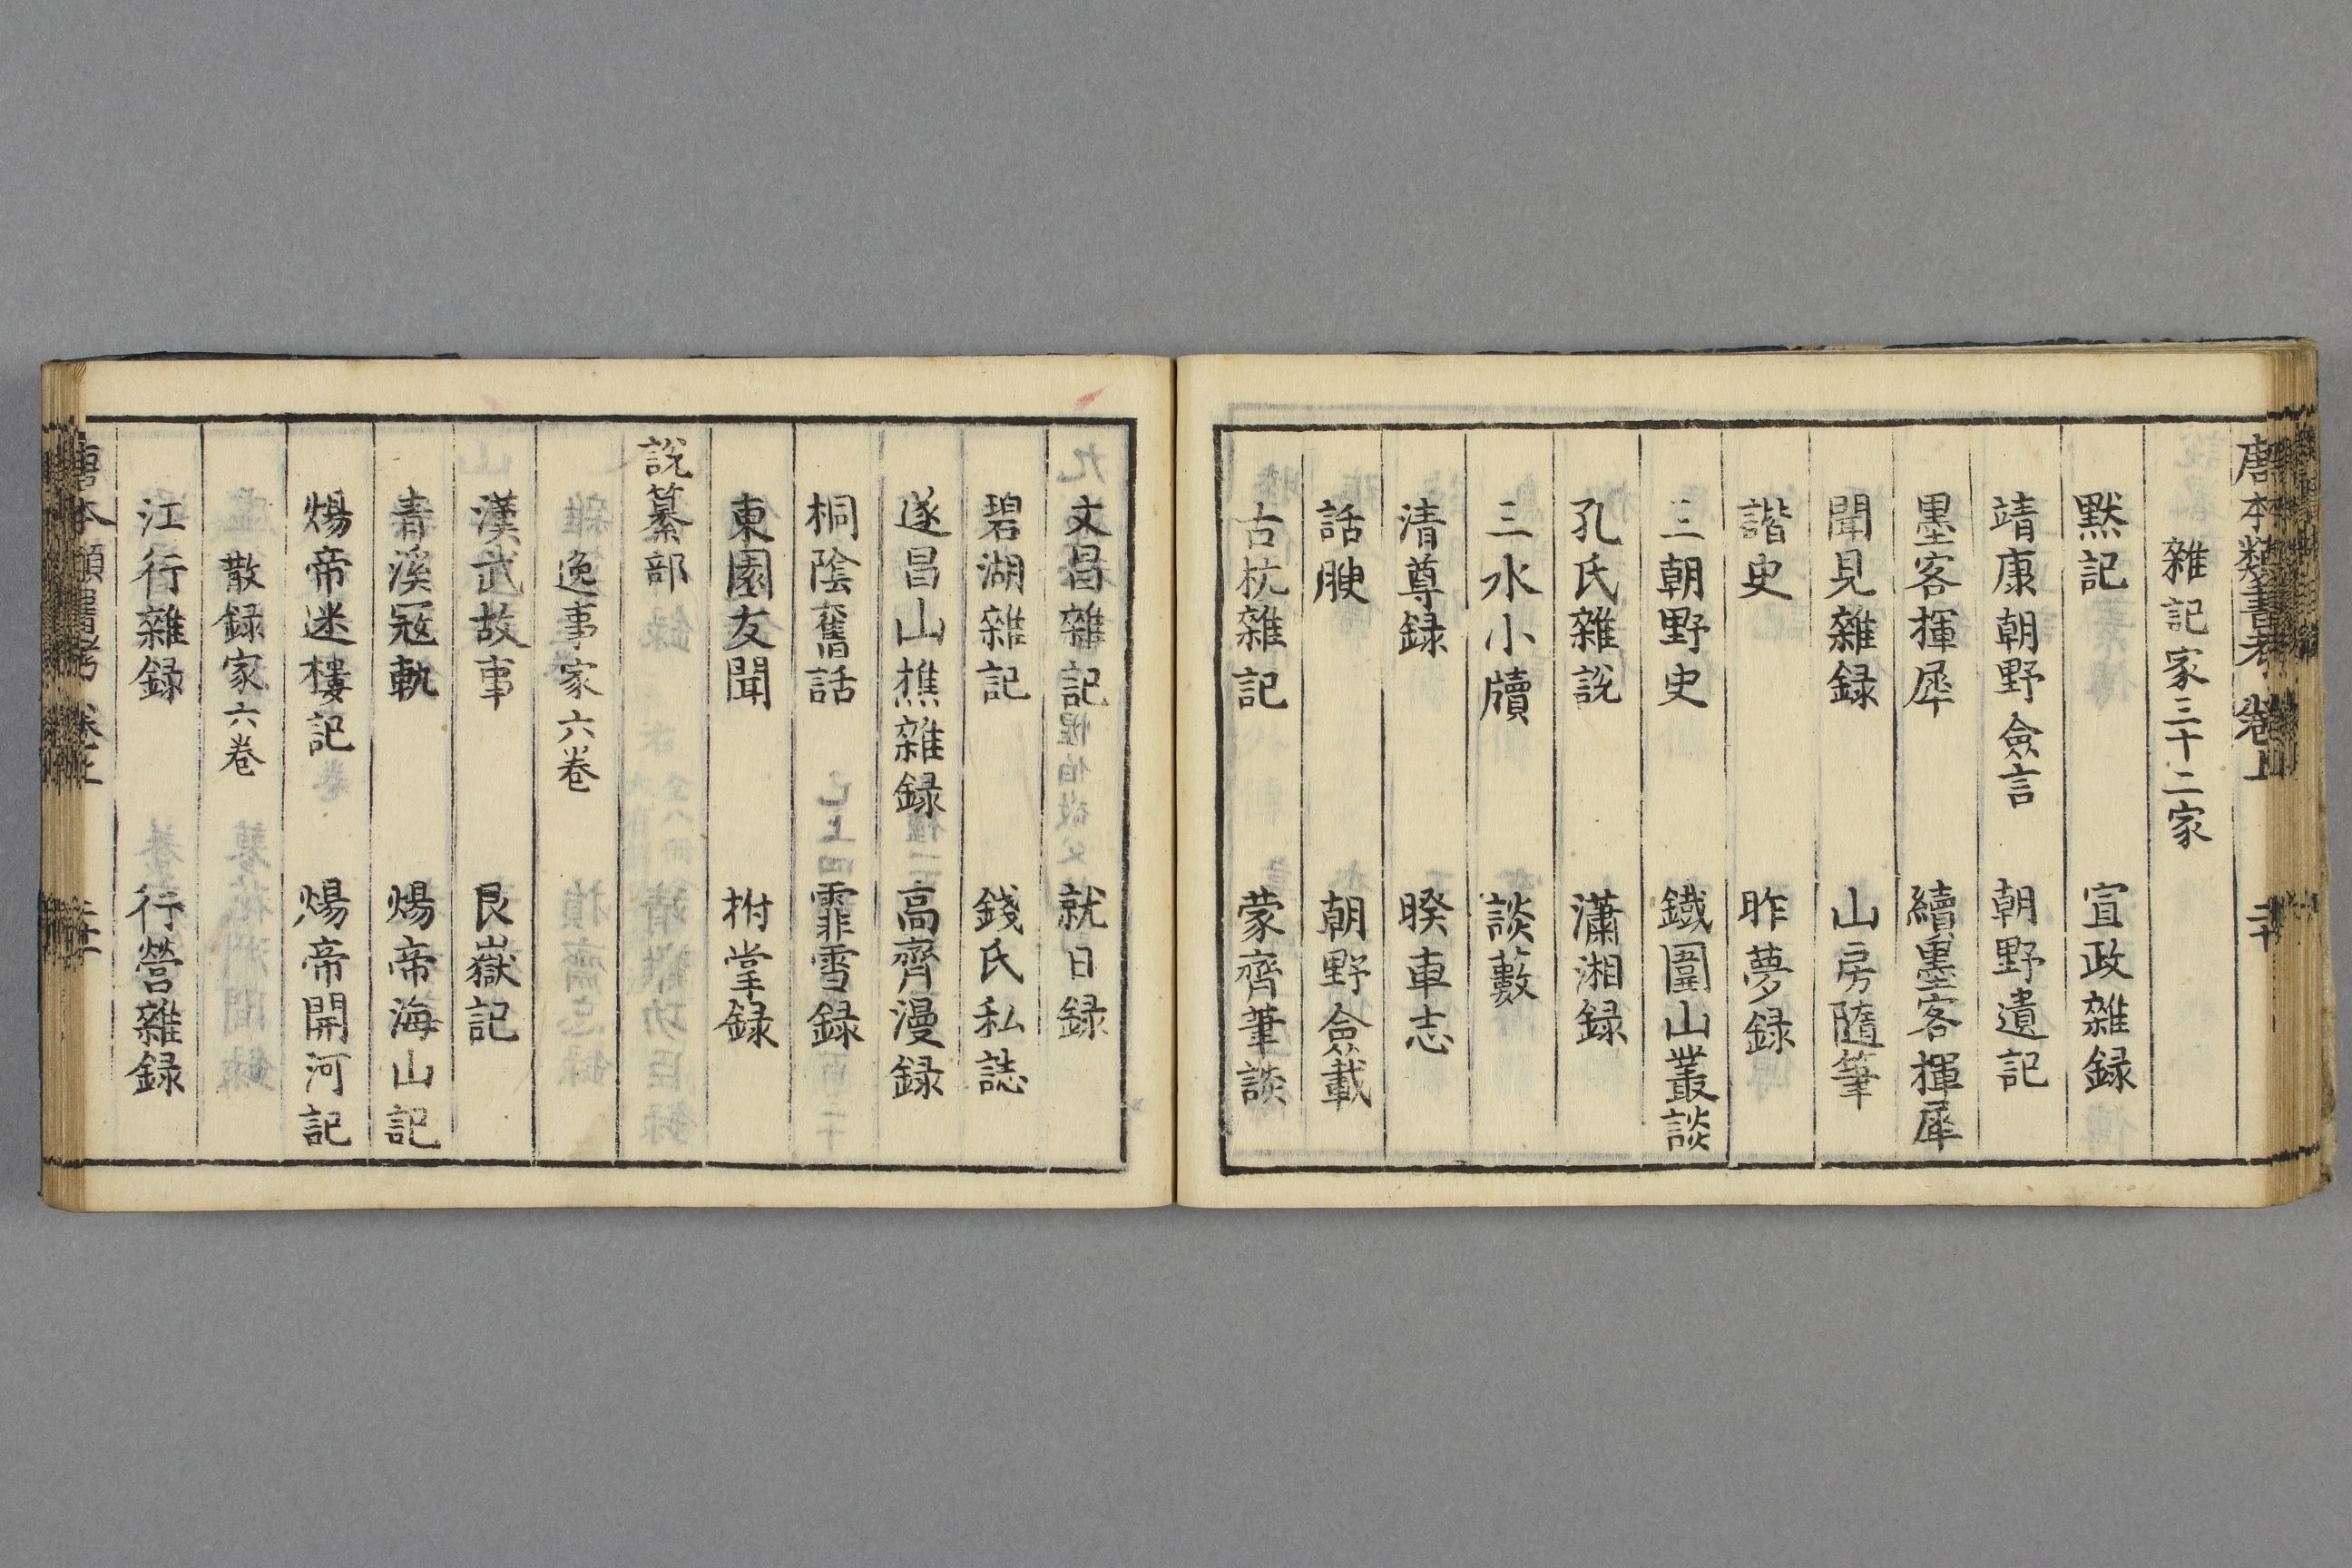 唐本類書考 卷上
雜記家三十二家
默記 宣政雜録
靖康朝野僉言 朝野遺記
墨客揮犀 續墨客揮犀
聞見雜録 山房隨筆
諧史 昨夢録
三朝野史 鐵圍山叢談
孔氏雜説 瀟湘録
三水小牘 談藪
清尊録 睽車志
話腴 朝野僉載
古杭雜記 蒙齊筆談
文昌雜記 就日録
碧湖雜記 錢氏私誌
遂昌山樵雜録 高齊漫録
桐陰舊話 霏雪録
東園友聞 拊掌録
説纂部
逸事家六卷
漢武故事 艮嶽記
青溪冦軌 煬帝海山記
煬帝迷樓記 煬帝開河記
散録家六卷
江行雜録 行營雜録